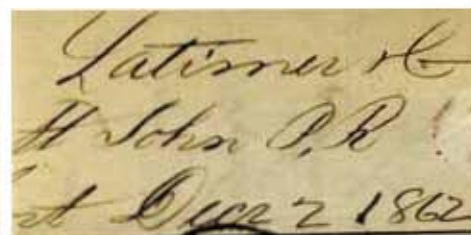 Latimer &
St John P.R
Decr 2 1862